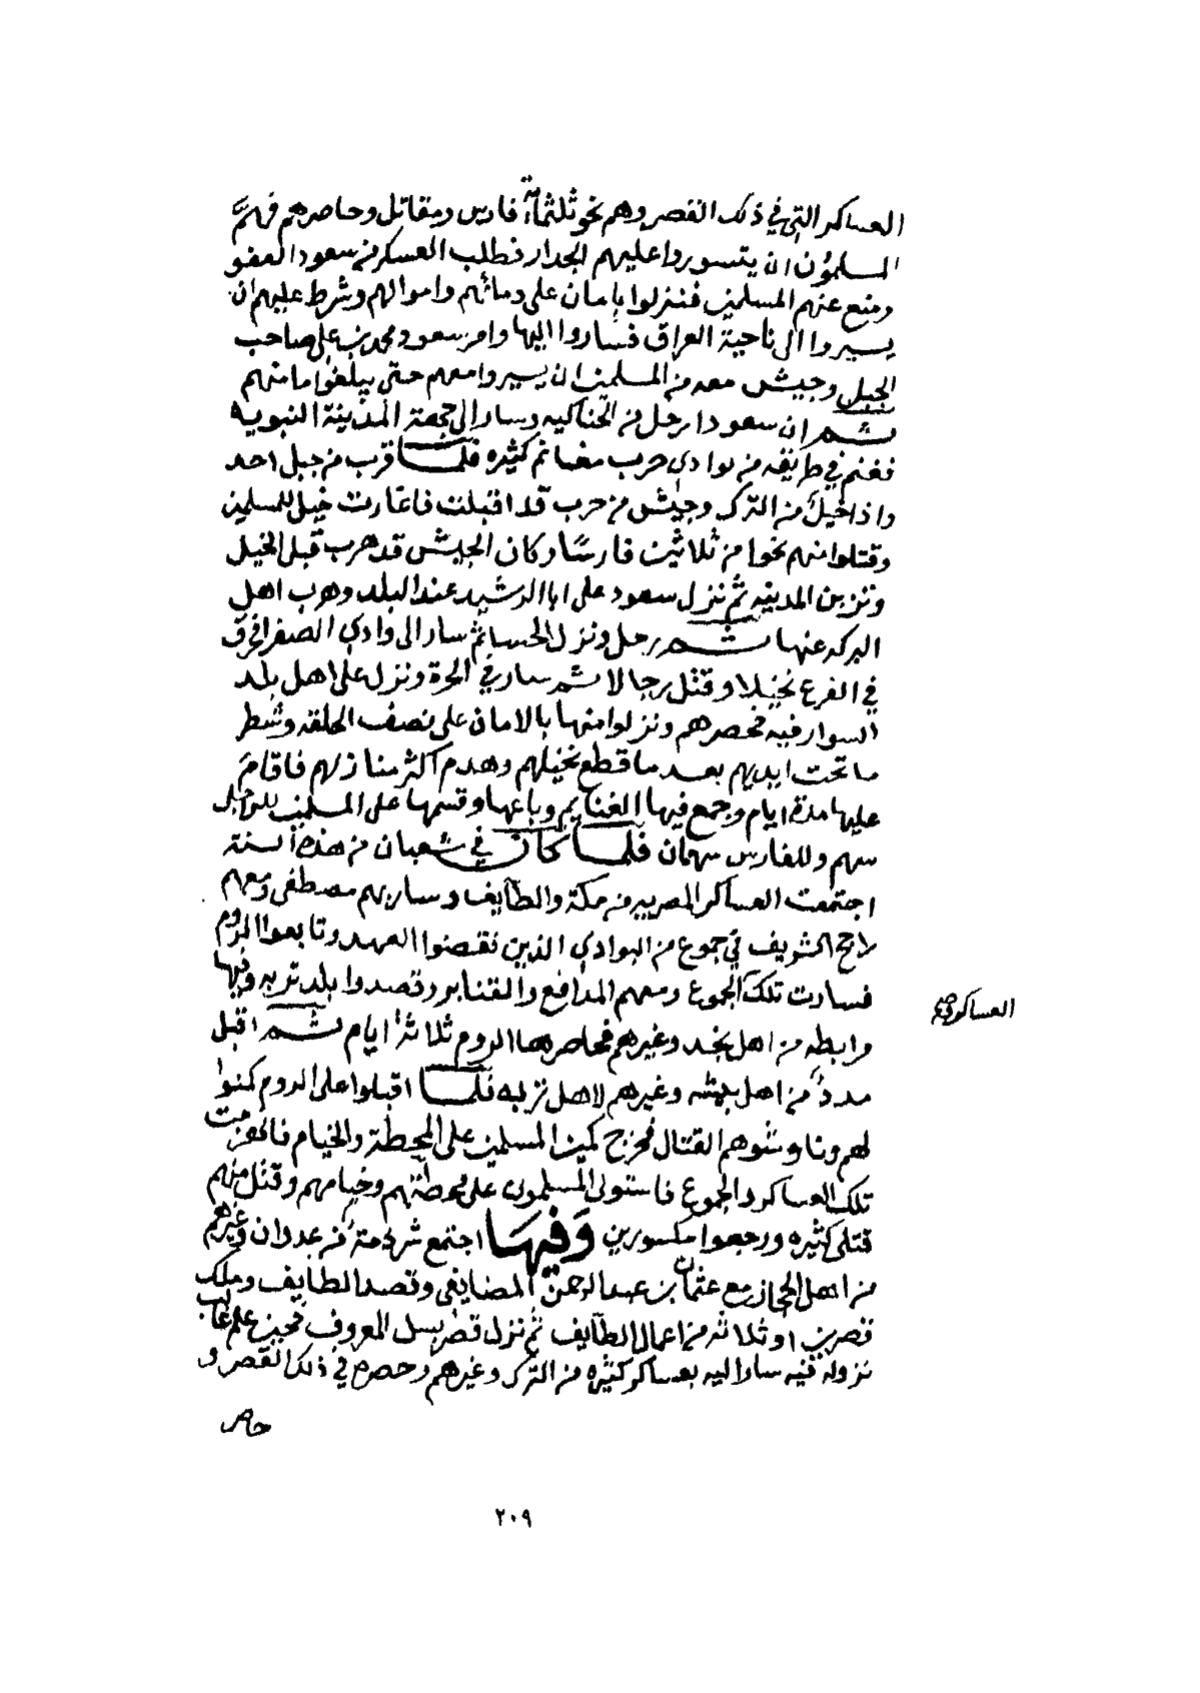 العساكر التي في ذلك القصر وهم نحو ثلثماية فارس ومقاتل وحاصرهم فهمَّ
المسلمون ان يتسوروا عليهم الجدار فطلب العسكر من سعود العفو
ومنع عنهم المسلمين فنزلوا بامان على دمائهم واموالهم وشرط عليهم ان
يسيروا الى ناحية العراق فساروا اليها وامر سعود محمد بن علي صاحب
الجبل وجيش معه من المسلمين ان يسيروا معهم حتى يبلغوا مامنهم
ثم ان سعودا رحل من الحناكيه وسار الى جهة المدينة النبويه
فغنم في طريقه من بوادي حرب مغانم كثيره فلما قرب من جبل احد
واذا خيل من الترك وجيش من حرب قد اقبلت فاغارت خيل المسلمين
وقتلوا منهم نحوا من ثلاثين فارسًا وكان الجيش قد هرب قبل الخيل
وتزبن المدينه ثم نزل سعود على ابا الرشيد عند البلد وهرب اهل
البركه عنها ثم رحل ونزل الحسا ثم سار الى وادي الصفرا فحرق
في الفرع نخيلا وقتل رجالا ثم سار في الحرة ونزل على اهل بلد
السوارفيه فحصرهم ونزلوا منها بالامان على نصف الحلقه وشطر
ما تحت ايديهم بعد ما قطع نخيلهم وهدم اكثر منازلهم فاقام
عليها مدة ايام وجمع فيها الغنايم وباعها وقسمها على المسلمين للراجل
سهم وللفارس سهمان فلما كان في شعبان من هذه السنة
اجتمعت العساكر المصريه من مكة والطايف وسار بهم مصطفى ومعهم
راجح الشريف في جموع من البوادي الذين نقضوا العهد وتابعوا الروم
فسارت تلك الجموع ومعهم المدافع والقنابر وقصدوا بلد تربه وفيها
مرابطه من اهل نجد وغيرهم فحاصرها الروم ثلاثة ايام ثم اقبل
مددٌ من اهل بيشه وغيرهم لاهل تربه فلما اقبلوا على الروم كمنوا
لهم وناوشوهم القتال فخرج كمين المسلمين على المحطة والخيام فانهزمت
تلك العساكر والجموع فاستولى المسلمون على محطتهم وخيامهم وقتل منهم
قتلى كثيره ورجعوا مكسورين وفيها اجتمع شرذمة من عدوان وغيرهم
من اهل الحجاز مع عثمان بن عبد الرحمن المضايفي وقصد الطايف وملك
قصرين او ثلاثه من اعمال الطايف ثم نزل قصر بسل المعروف فحين علم غالب
نزوله فيه سار اليه بعساكر كثيره من الترك وغيرهم وحصره في ذلك القصر و
حاصر
العساكر
٢٠٩